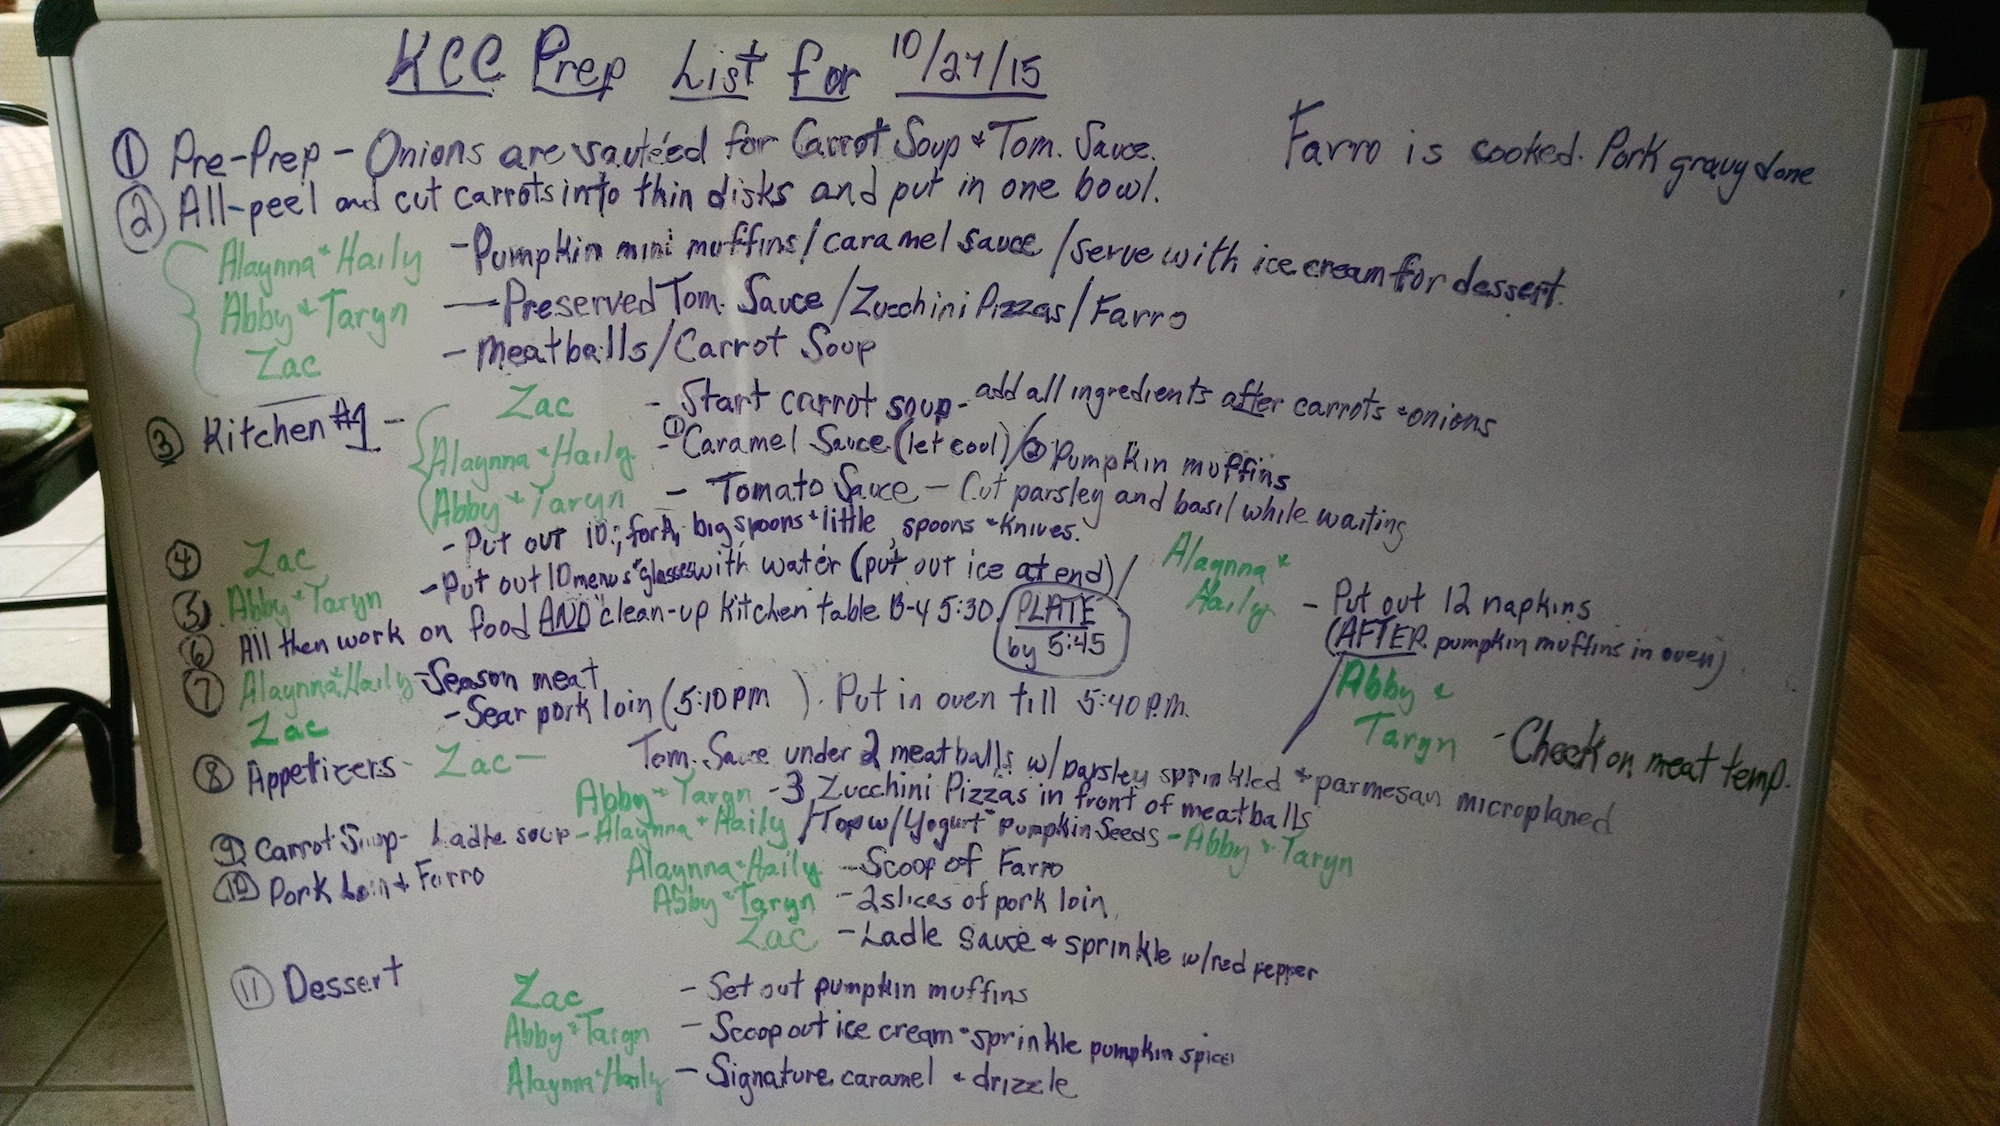 KCC Prep List for 10/27/15
Farro is cooked. Pork gravy done
① Pre-Prep - Onions are sautéed for Carrot Soup + Tom. Sauce.
② All-peel and cut carrots into thin disks and put in one bowl.
Alaynna + Haily - Pumpkin mini muffins/caramel sauce/serve with ice cream for dessert.
Abby + Taryn - Preserved Tom. Sauce/Zucchini Pizzas/Farro
Zac - Meatballs/Carrot Soup
③ Kitchen #1 - Zac - Start carrot soup - add all ingredients after carrots + onions
Alaynna + Haily - ① Caramel Sauce (let cool)/② Pumpkin muffins
Abby + Taryn - Tomato Sauce - Cut parsley and basil while waiting
④ Zac - Put out 10: fork, big spoons + little spoons + knives.
⑤ Abby + Taryn - Put out 10 menus + glasses with water (put out ice at end)/ Alaynna + Haily - Put out 12 napkins
(AFTER pumpkin muffins in oven)
⑥ All then work on food AND clean-up kitchen table B-4 5:30/ PLATE by 5:45
⑦ Alaynna + Haily - Season meat
Zac - Sear pork loin (5:10pm ). Put in oven till 5:40 P.M. / Abby + Taryn - Check on meat temp.
⑧ Appetizers - Zac - Tom. Sauce under 2 meatballs w/parsley sprinkled + parmesan microplaned
Abby + Taryn - 3 Zucchini Pizzas in front of meatballs
⑨ Carrot Soup - Ladle soup - Alaynna + Haily /Top w/Yogurt + pumpkin seeds - Abby + Taryn
⑩ Pork Loin + Farro Alaynna + Haily - Scoop of Farro
Abby + Taryn - 2 slices of pork loin
Zac - Ladle sauce + sprinkle w/red pepper
⑪ Dessert Zac - Set out pumpkin muffins
Abby + Taryn - Scoop out ice cream + sprinkle pumpkin spice
Alaynna + Haily - Signature caramel + drizzle